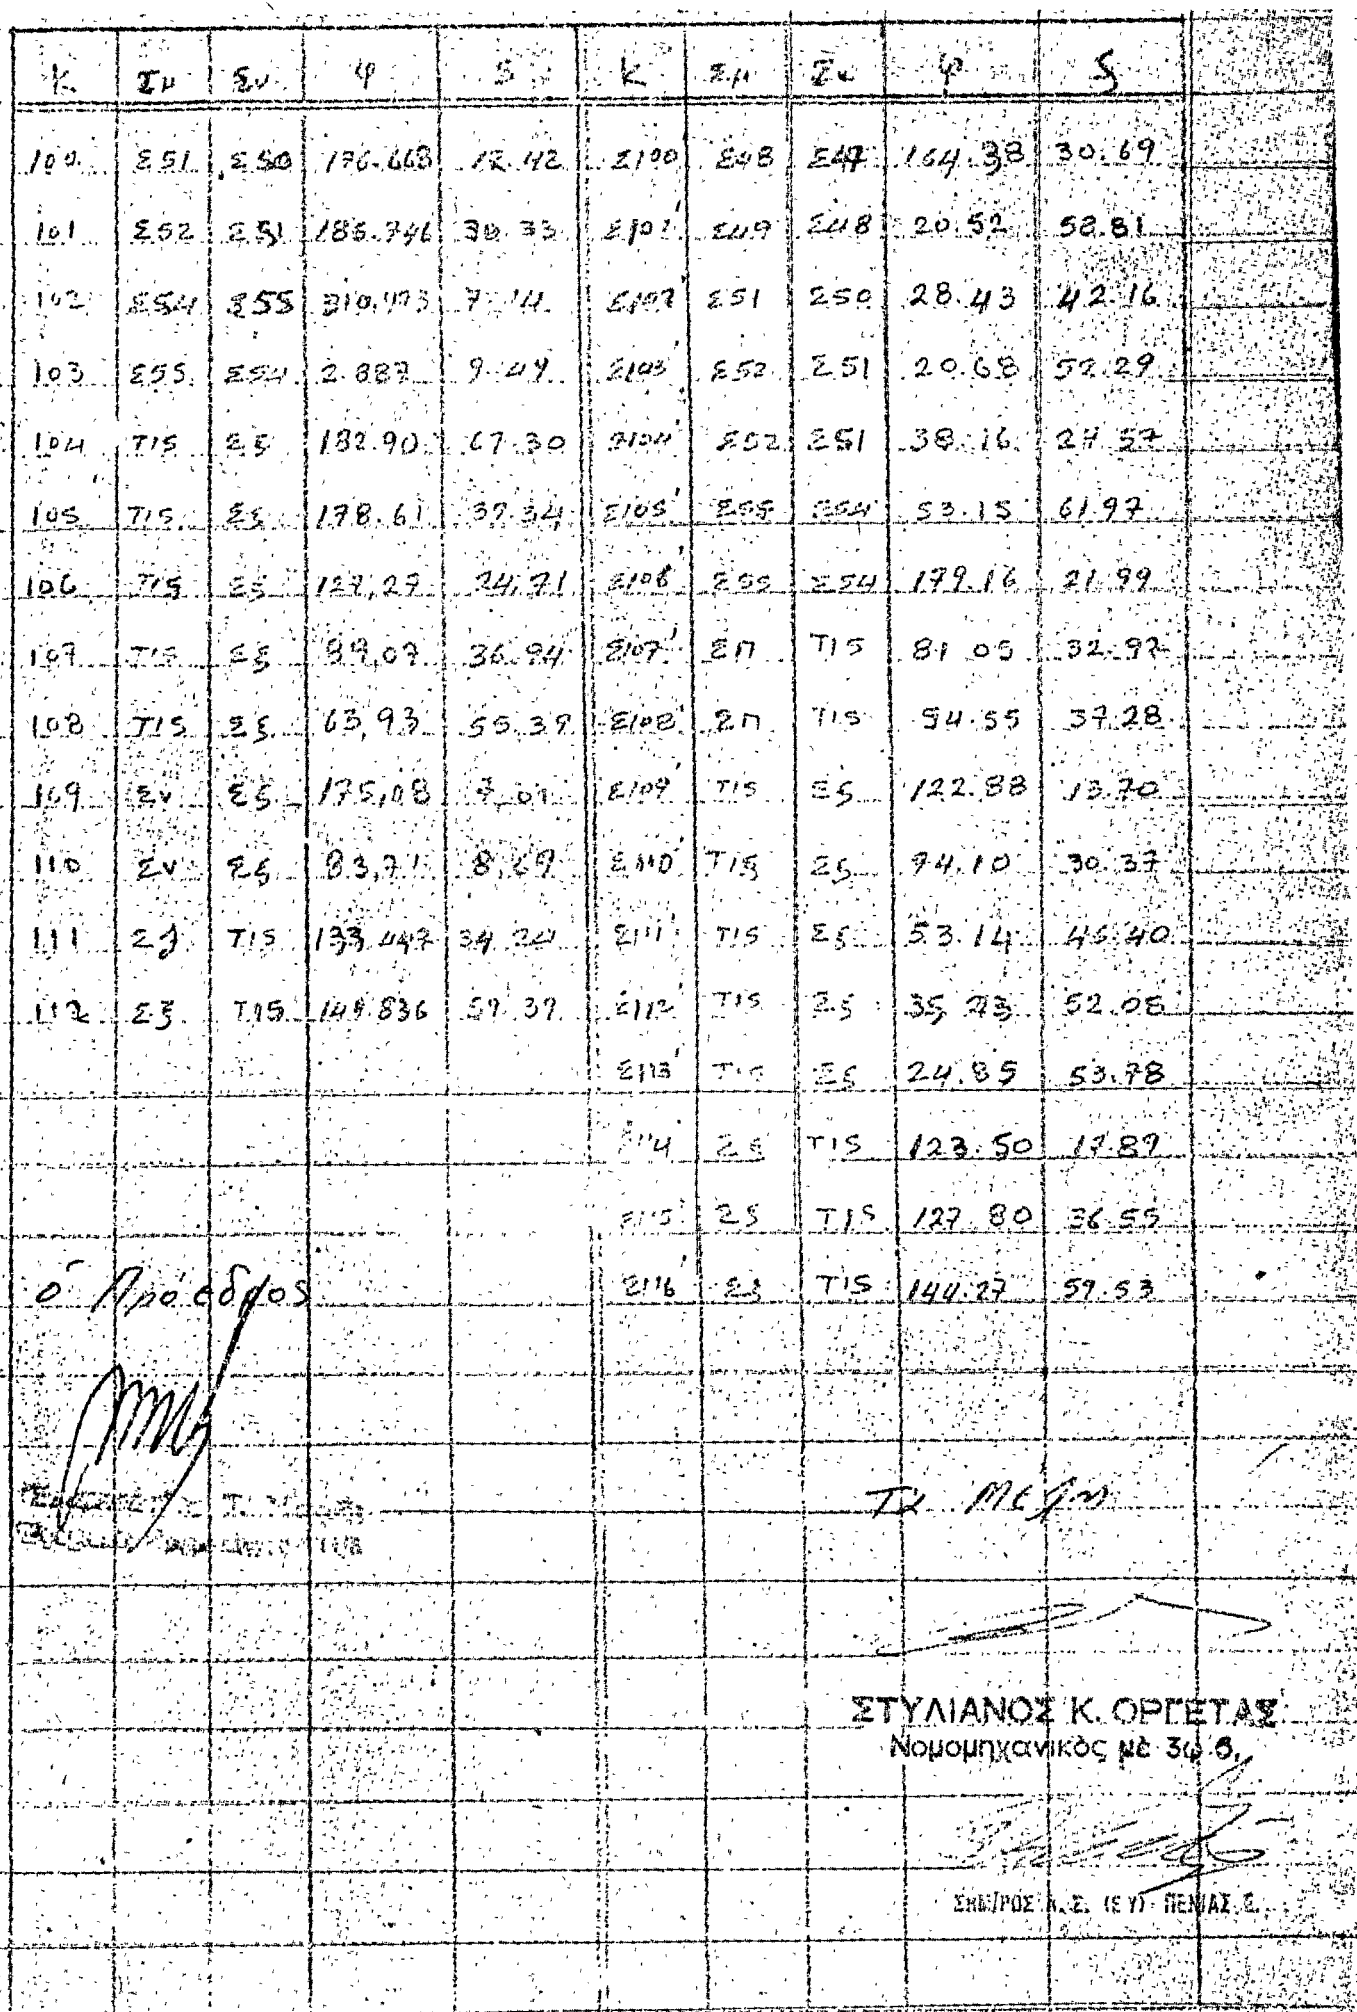 Κ Σμ Σν φ S Κ Σμ Σν φ S
100 Σ51 Σ50 176.668 12.42 Σ100 Σ48 Σ47 164.38 30.69
101 Σ52 Σ51 185.746 30.33 Σ101' Σ49 Σ48 20.52 58.81
102 Σ54 Σ55 310.473 7.14 Σ102' Σ51 Σ50 28.43 42.16
103 Σ55 Σ54 2.887 9.49 Σ103' Σ52 Σ51 20.68 52.29
104 Τ15 Σξ 182.90 67.30 Σ104' Σ52 Σ51 38.16 27.57
105 Τ15 Σξ 178.61 37.34 Σ105' Σ55 Σ54 53.15 61.97
106 Τ15 Σξ 127,27 24,71 Σ106' Σ55 Σ54 179.16 21.99
107 Τ15 Σξ 89,07 36.94 Σ107' ΣΠ Τ15 81.05 32.97
108 Τ15 Σξ 63,93 55.39 Σ108' ΣΠ Τ15 94.55 37.28
109 Σν Σξ 175,08 7,01 Σ109' Τ15 Σξ 122.88 13.70
110 Σν Σξ 83,71 8,69 Σ110' Τ15 Σξ 94.10 30.37
111 Σξ Τ15 133.447 34.24 Σ111' Τ15 Σξ 53.14 46.40
112 Σξ Τ15 149.836 59.39 Σ112' Τ15 Σξ 35.23 52.08
Σ113' Τ15 Σξ 24.85 53.78
Σ114' Σξ Τ15 123.50 17.87
Σ115' Σξ Τ15 127.80 36.55
Ο Πρόεδρος Σ116' Σξ Τ15 144.27 59.53
Τα Μέλη
ΣΤΥΛΙΑΝΟΣ Κ. ΟΡΓΕΤΑΣ
Νομομηχανικὸς μὲ 3ῳ β.